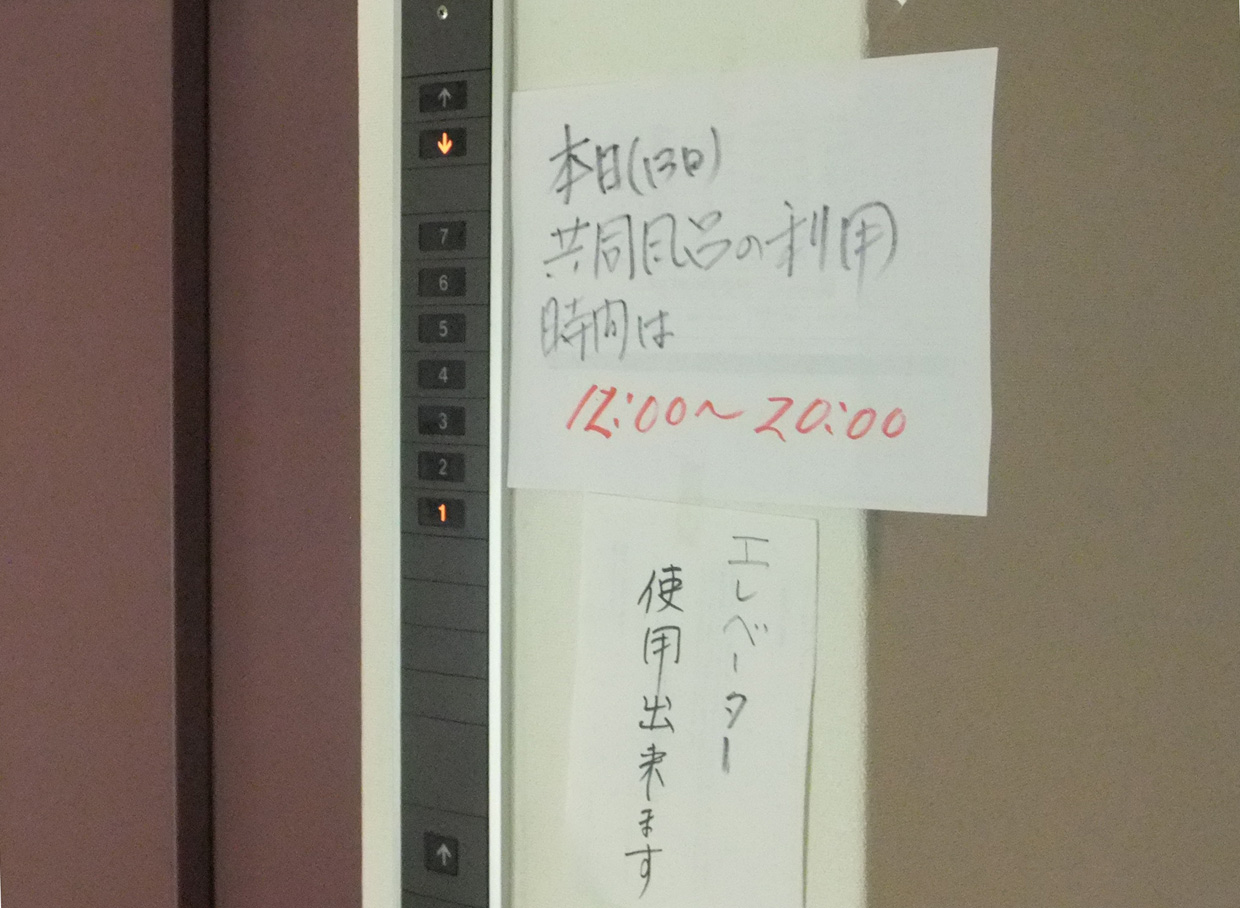 ↑
↓
7
6
5
4
3
2
1
↑
本日(13日)
共同風呂の利用
時間は
12:00〜20:00
エレベーター
使用出来ます